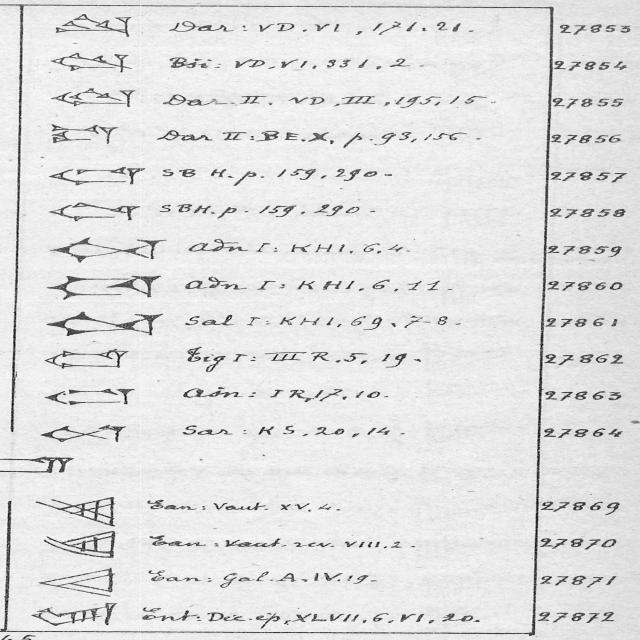 Dar: VD. VI, 171. 21. 27853
Bši: VD. VI. 331. 2. 27854
Dar. II. VD. III, 195, 15. 27855
Dar II: BE. X, p. 93, 156. 27856
SBH. p. 159, 290. 27857
SBH. p. 159, 290. 27858
Adn I: KHI. 6. 4. 27859
Adn I: KHI, 6, 11. 27860
Sal I: KHI, 69, 7-8. 27861
Tig I: III R. 5, 19. 27862
Ašn: I R, 17, 10. 27863
Sar: KS. 20, 14. 27864
Ean: Vaut. XV. 4. 27869
Ean: Vaut. rev. VIII. 2. 27870
Ean: Gal. A. IV. 19. 27871
Ent: Déc. ép, XLVII, 6, VI, 20. 27872